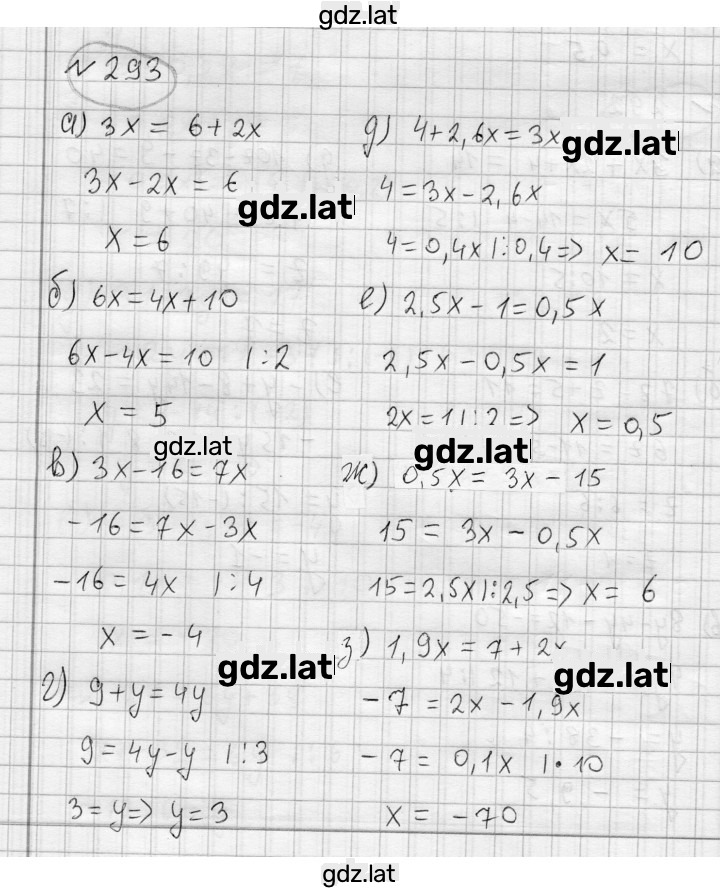 gdz.lat
N 293
а) 3x = 6+2x
3x-2x = 6
gdz.lat
x = 6
б) 6x=4x+10
6x-4x=10 |:2
x = 5
gdz.lat
в) 3x-16=7x
-16=7x-3x
-16=4x |:4
x = -4
gdz.lat
г) 9+y=4y
9=4y-y |:3
3=y=> y=3
д) 4+2,6x=3x
gdz.lat
4=3x-2,6x
4=0,4x |:0,4=> x= 10
е) 2,5x-1=0,5x
2,5x-0,5x=1
2x=1 |:2=> x=0,5
gdz.lat
ж) 0,5x= 3x-15
15 = 3x-0,5x
15=2,5x |:2,5=> x= 6
з) 1,9x=7+2x
gdz.lat
-7 =2x-1,9x
-7= 0,1x |·10
x= -70
gdz.lat